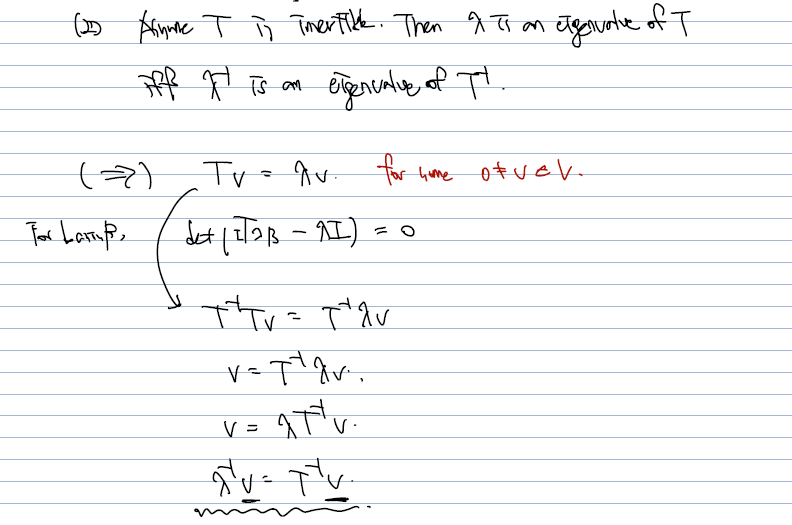 (2) Assume T is invertible. Then λ is an eigenvalue of T
iff λ⁻¹ is an eigenvalue of T⁻¹.
(⇒) Tv = λv. for some 0 ≠ v ∈ V.
For basis β, det([T]β - λI) = 0
T⁻¹Tv = T⁻¹λv
v = T⁻¹λv.
v = λT⁻¹v.
λ⁻¹v = T⁻¹v.